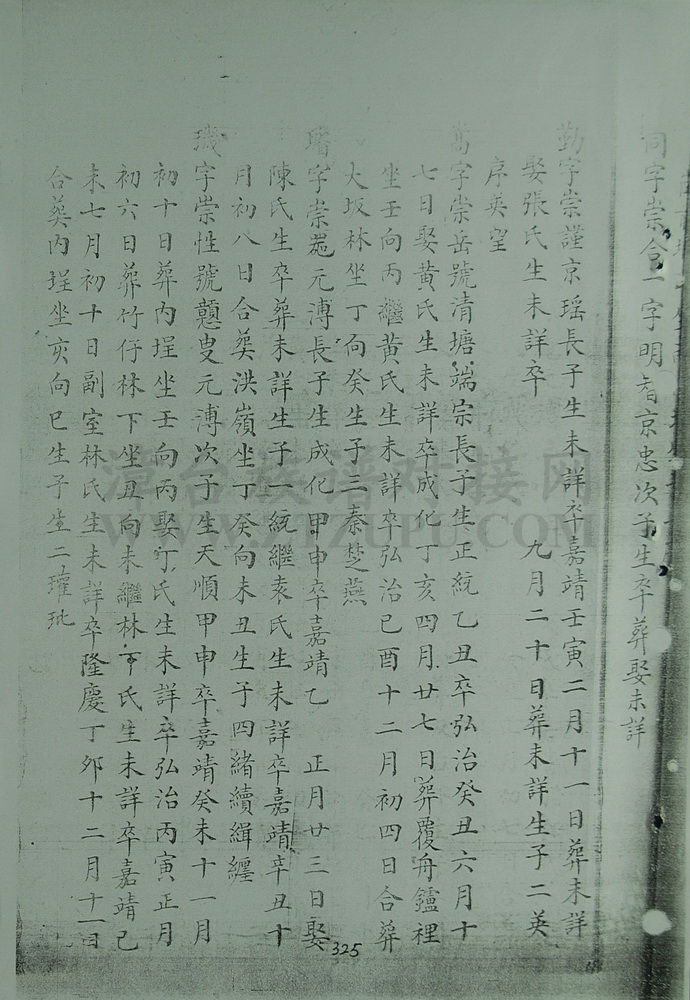 同字崇含一字明書京忠次子生卒葬娶未詳
勤字崇謹京瑶長子生未詳卒嘉靖壬寅二月十一日葬未詳
娶張氏生未詳卒 九月二十日葬未詳生子二英
序英望
嵩字崇岳號清塘端宗長子生正統乙丑卒弘治癸丑六月十
七日娶黄氏生未詳卒成化丁亥四月廿七日葬覆舟鑪裡
坐壬向丙繼黄氏生未詳卒弘治己酉十二月初四日合葬
大坂林坐丁向癸生子三秦楚燕
字崇元溥長子生成化甲申卒嘉靖乙 正月廿三日娶
陳氏生卒葬未詳生子一統繼袁氏生未詳卒嘉靖辛丑十
月初八日合葵洪嶺坐丁癸向未丑生子四緒續緝纏
璣字崇性號戇叟元溥次子生天順甲申卒嘉靖癸未十一月
初十日葬内埕坐壬向丙娶丁氏生未詳卒弘治丙寅正月
初六日葬竹仔林下坐丑向未繼林下氏生未詳卒嘉靖己
未七月初十日副室林氏生未詳卒隆慶丁卯十二月十一日
合葵内埕坐亥向巳生子生二瓘玭
325
漳台族譜对接网
WWW.ZTZUPU.COM